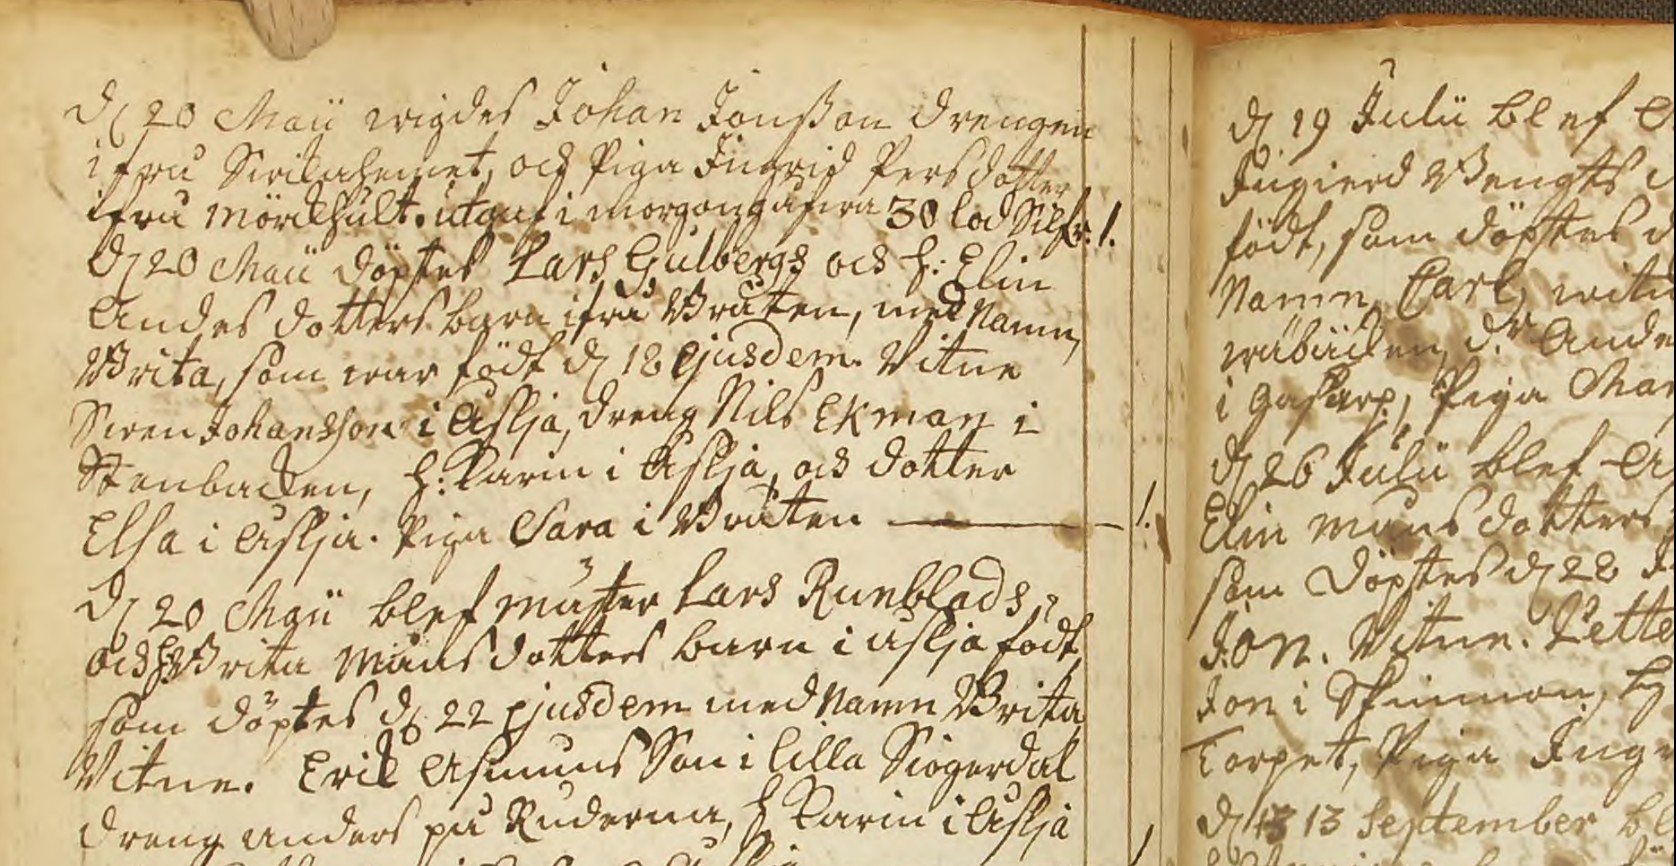 d 20 Maii wigdes Johan Jonsson Drengen
ifrå Swilahemet, och Piga Ingrid Pers dotter
ifrå Mörckhult. utgaf i morgongåfwa 30 lod Silfr: 1.
d 20 Maii döptes Lars Gulbergs och h: Elin
Andes dotters barn ifrå Bråten, med Namn,
Brita, som war födt d 18 ejusdem. Vitne
Swen Johansson i Aslja, Dreng Nils Ekman i
Stenbacken, h: Karin i Aslja, och dotter
Elsa i Aslja. Piga Sara i Bråten 1.
d 20 Maii blef mäster Lars Runblads,
och h Brita Måns dotters barn i Aslja födt,
som döptes d 22 ejusdem med Namn Brita
Vitne. Erik Asmuns Son i Lilla Siögerdal
Dreng Anders på Ruderna, h Karin i Aslja
d 19 Julii blef
Ingierd Bengts
födt, som döptes d
Namn, Carl, witn
d.r Ande
i Gasarp, Piga Mar
d 26 Julii blef A
Elin Måns dotters
som döptes d 28 J
Jon. Vitne. Pette
Jon i
Torpet, Piga Ingr
d 13 September bl